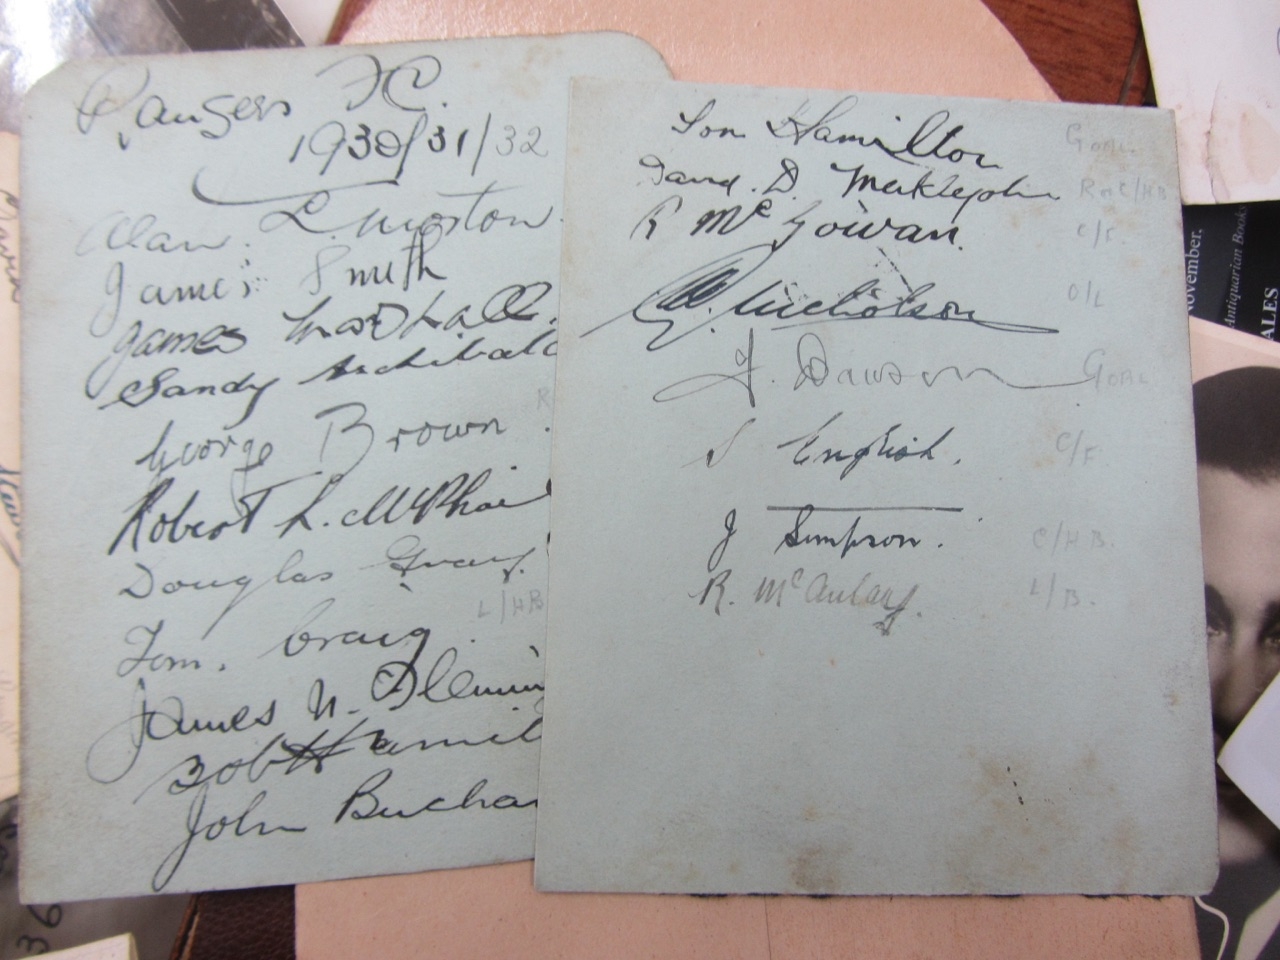 Rangers FC.
1930/31/32
Alan. L. Morton.
James Smith
James Marshall.
Sandy Archibald
George Brown
R
Robert L. McPhail
Douglas Gray.
L/HB
Tom. Craig.
James N. Flemin
Bob Hamil
John Buchan
Tom Hamilton GOAL.
David. D. Meiklejohn R or C/HB
R McGowan. C/F.
Nicholson O/L
J. Dawson GOAL
S English. C/F.
J Simpson. C/H.B.
R. McAulay. L/B.
November.
Antiquarian Books
ALES
36